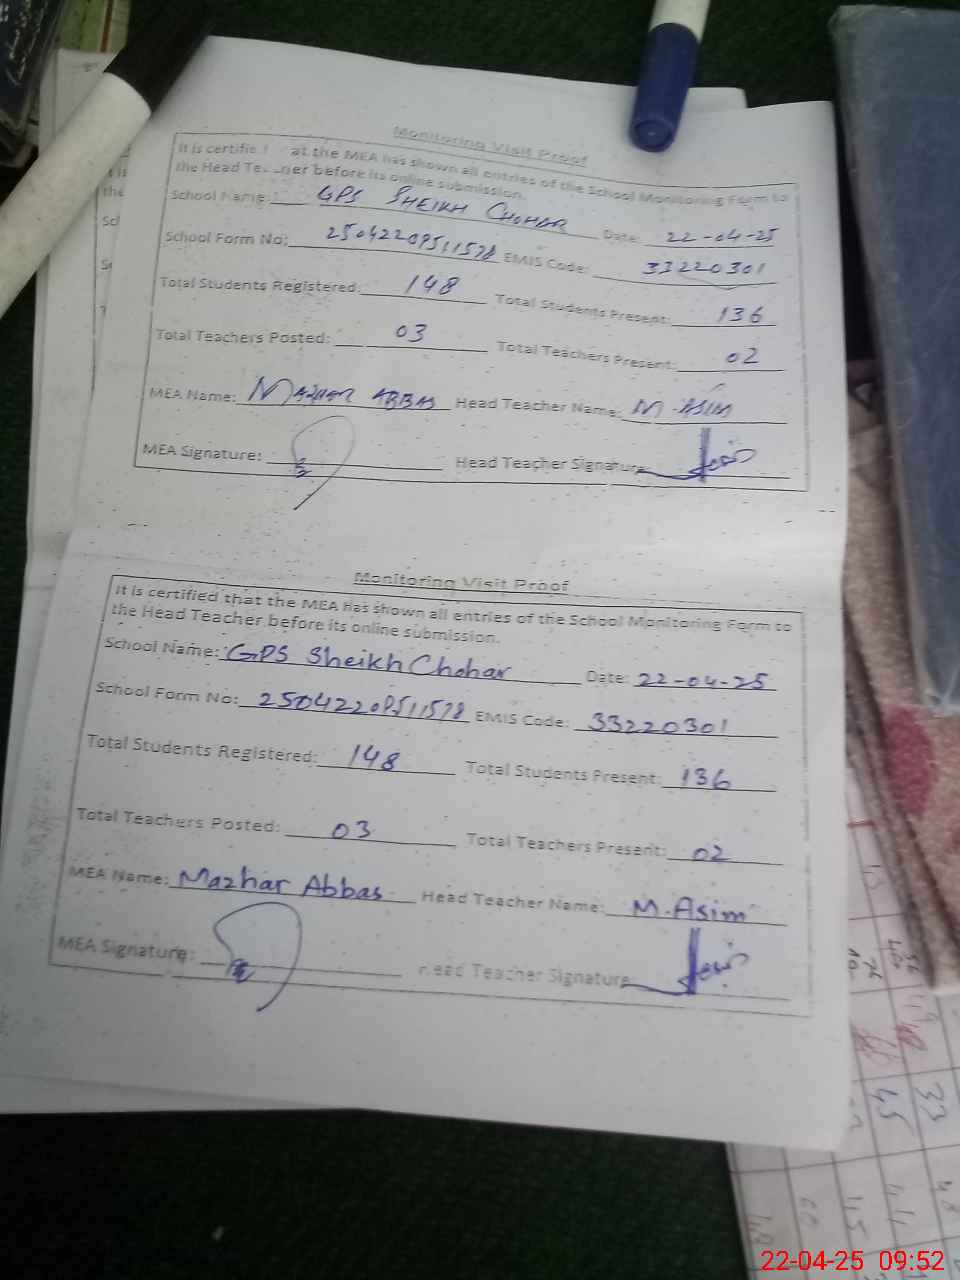 Monitoring Visit Proof
It is certifie at the MEA has shown all entries of the School Monitoring Form to
the Head Te ner before its online submission.
School Name: GPS SHEIKH CHOHAR Date: 22-04-25
School Form No: 25042209511578 EMIS Code: 33220301
Total Students Registered: 148 Total Students Present: 136
Total Teachers Posted: 03 Total Teachers Present: 02
MEA Name: MAZHAR ABBAS Head Teacher Name: M. ASIM
MEA Signature: Head Teacher Signature
Monitoring Visit Proof
It is certified that the MEA has shown all entries of the School Monitoring Form to
the Head Teacher before its online submission.
School Name: GPS Sheikh Chohar Date: 22-04-25
School Form No: 25042209511578 EMIS Code: 33220301
Total Students Registered: 148 Total Students Present: 136
Total Teachers Posted: 03 Total Teachers Present: 02
MEA Name: Mazhar Abbas Head Teacher Name: M. Asim
MEA Signature: Head Teacher Signature:
22-04-25 09:52